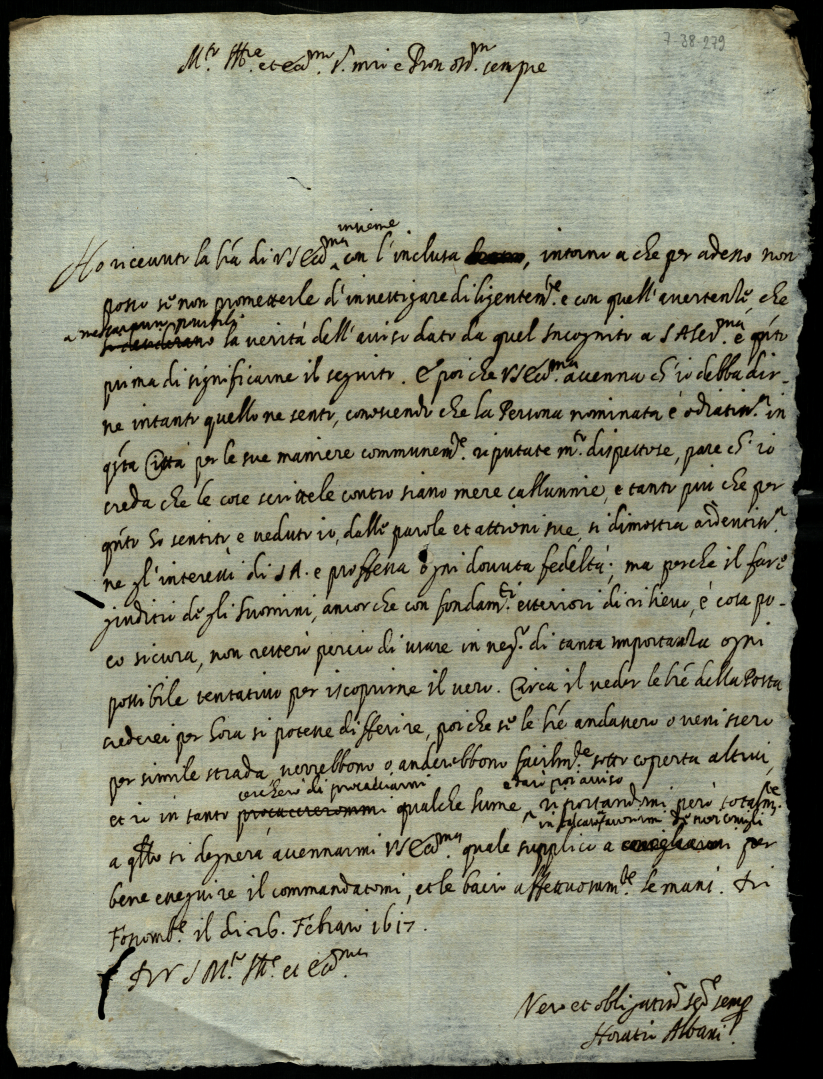 7-38-279
M.to Ill.re et ecc.mo S.r mio e Pron oss.mo sempre
insieme
Ho ricevuto la lra di VS Ecc.ma con l'inclusa, intorno a che per adesso non
posso se non prometterle d'investigare diligentem.te e con quell'avertenze, che
a me saranno possibili
la verità dell'aviso dato da quel Incognito a S A Ser.ma e q.to
prima di significarne il seguito. E poi che VS Ecc.ma accenna ch'io debba dir-
ne intanto quello ne sento, conoscendo che la Persona nominata è odiatiss.a in
q.sta Città per le sue maniere communem.te riputate m.to dispettose, pare ch'io
creda che le cose scrittele contro siano mere callunnie, e tanto più che per
q.nto ho sentito e veduto io, dalle parole et attioni sue, si dimostra ardentiss.a
ne gl'interessi di S A. e professa ogni dovuta fedeltà; ma perche il fare
giuditio de gli huomini, ancorche con fondam.ti esteriori di rilievo, è cosa po-
co sicura, non resterò perciò di usare in neg.o di tanta importanza ogni
possibile tentativo per iscoprirne il vero. Circa il veder le lre della Posta
crederei per hora si potesse differire, poi che se le lre andassero o venissero
per simile strada, verrebbono o anderebbono facilm.te sotto coperta altrui,
cercherò di procacciarmi e darò poi aviso
et io in tanto procaccieròmmi qualche lume, riportandomi però totalm.te
in
a q.llo si degnerà accennarmi VS Ecc.ma quale supplico a per
bene eseguire il commandatomi, et le bacio affettuosam.te le mani. Di
Fossomb.e il di 26. Febraro 1617.
Di V S M.to Ill.e et Ecc.ma
Vero et obligatiss.o se.re semp.e
Horatio Albani